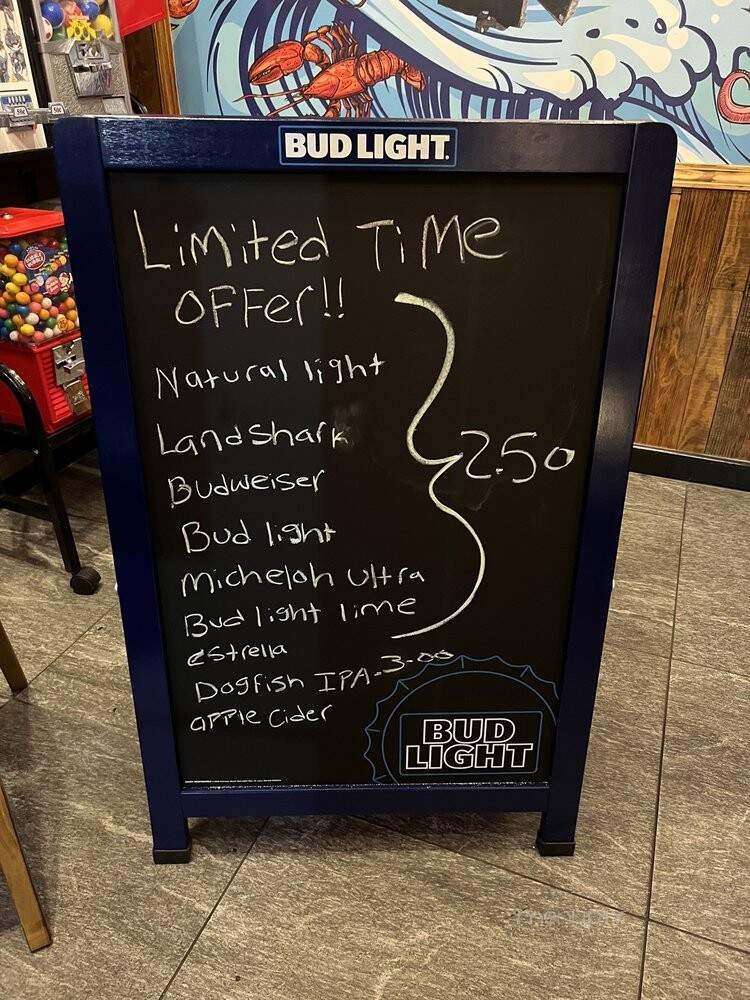 BUD LIGHT
Limited Time
OFFer!!
Natural light
Landshark
Budweiser
Bud light
Micheloh Ultra
Bud light lime
2.50
estrella
Dogfish IPA-3.00
apple Cider
BUD
LIGHT